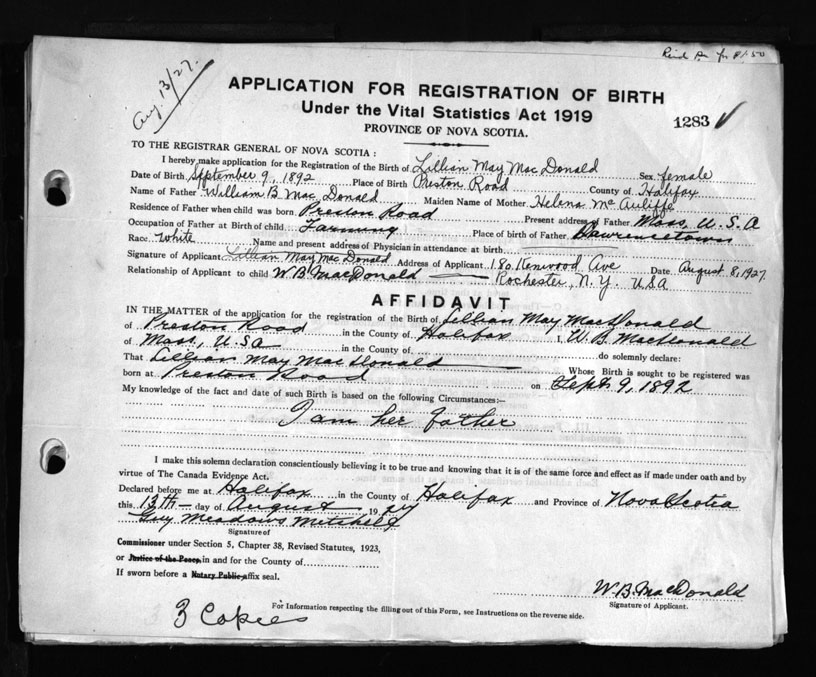 Aug. 13/27.
APPLICATION FOR REGISTRATION OF BIRTH
Under the Vital Statistics Act 1919
1283
PROVINCE OF NOVA SCOTIA.
TO THE REGISTRAR GENERAL OF NOVA SCOTIA:
I hereby make application for the Registration of the Birth of Lillian May MacDonald Sex female
Date of Birth September 9, 1892 Place of Birth Preston Road County of Halifax
Name of Father William B MacDonald Maiden Name of Mother Helena McAuliffe
Residence of Father when child was born Preston Road Present address of Father Mass, U.S.A
Occupation of Father at Birth of child Farming Place of birth of Father Lawrencetown
Race White Name and present address of Physician in attendance at birth
Signature of Applicant Lillian May MacDonald Address of Applicant 180 Kenwood Ave Date August 8, 1927.
Relationship of Applicant to child W.B. MacDonald Rochester, N.Y. USA
AFFIDAVIT
IN THE MATTER of the application for the registration of the Birth of Lillian May MacDonald
of Preston Road in the County of Halifax I, W.B. MacDonald
of Mass, USA in the County of do solemnly declare:
That Lillian May MacDonald Whose Birth is sought to be registered was
born at Preston Road on Sept 9, 1892
My knowledge of the fact and date of such Birth is based on the following Circumstances:—
I am her father
I make this solemn declaration conscientiously believing it to be true and knowing that it is of the same force and effect as if made under oath and by
virtue of The Canada Evidence Act.
Declared before me at Halifax in the County of Halifax and Province of Nova Scotia
this 13th day of August 1927
Guy Meadows Mitchell
Signature of
Commissioner under Section 5, Chapter 38, Revised Statutes, 1923,
or Justice of the Peace, in and for the County of
If sworn before a Notary Public affix seal.
W.B. MacDonald
Signature of Applicant.
For Information respecting the filling out of this Form, see Instructions on the reverse side.
3 Copies